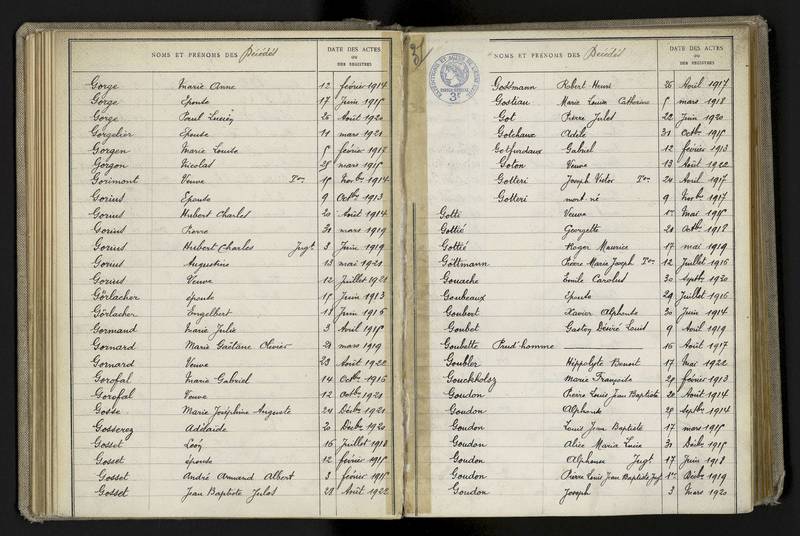 NOMS ET PRÉNOMS DES Décédés
DATE DES ACTES
OU
DES REGISTRES
Gorge Marie Anne 12 février 1914
Gorge Épouse 17 Juin 1915
Gorge Paul Lucien 26 Août 1920
Gorgelier Épouse 11 mars 1921
Gorgen Marie Louise 5 février 1918
Gorgon Nicolas 25 mars 1915
Gorimont Veuve Ton 15 Novbre 1914
Gorius Épouse 9 Octbre 1913
Gorius Hubert Charles 20 Août 1914
Gorius Pierre 31 mars 1919
Gorius Hubert Charles Jugt 3 Juin 1919
Gorius Augustine 13 mai 1921
Gorius Veuve 12 Juillet 1921
Görlacher épouse 15 Juin 1913
Görlacher Engelbert 18 Juin 1916
Gormand Marie Julie 3 Avril 1915
Gornard Marie Gaëtane Olivier 21 mars 1919
Gornard Veuve 23 Août 1922
Gorofal Marie Gabriel 14 Octbre 1916
Gorofal Veuve 12 Octbre 1921
Gosse Marie Joséphine Auguste 24 Décbre 1921
Gosserez Adélaïde 20 Décbre 1920
Gosset Léon 16 Juillet 1918
Gosset épouse 12 février 1915
Gosset André Armand Albert 3 février 1915
Gosset Jean Baptiste Jules 28 Août 1922
31
NOMS ET PRÉNOMS DES Décédés
DATE DES ACTES
OU
DES REGISTRES
Gossmann Robert Henri 26 Avril 1917
Gostiau Marie Louise Catherine 5 mars 1918
Got Pierre Jules 22 Juin 1920
Gotchaux Adèle 31 Octbre 1915
Gabriel 12 février 1913
Goton Veuve 13 Août 1922
Gotteri Joseph Victor Ton 24 Avril 1917
Gotteri mort né 9 Novbre 1917
Gotti Veuve Mai 1915
Gottié Georgette 21 Octbre 1918
Gottié Roger Maurice 17 mai 1919
Göttmann Pierre Marie Joseph Ton 12 Juillet 1916
Gouache Emile Carolus 30 Septbre 1920
Goubeaux Épouse 29 Juillet 1916
Goubert Xavier Alphonse 30 Juin 1914
Goubet Gaston Désiré Louis 9 Avril 1919
Goubette Prud'homme 16 Août 1917
Goubler Hippolyte Benoit 17 Mai 1922
Gouckholsz Marie Françoise 21 février 1913
Goudon Pierre Louis Jean Baptiste 20 Août 1914
Goudon Alphonse 29 Septbre 1914
Goudon Louis Jean Baptiste 17 mars 1915
Goudon Alice Maria Lucie 31 Décbre 1915
Goudon Alphonse Jugt 17 Juin 1918
Goudon Pierre Louis Jean Baptiste Jugt 1er Décbre 1919
Goudon Joseph 3 Mars 1920